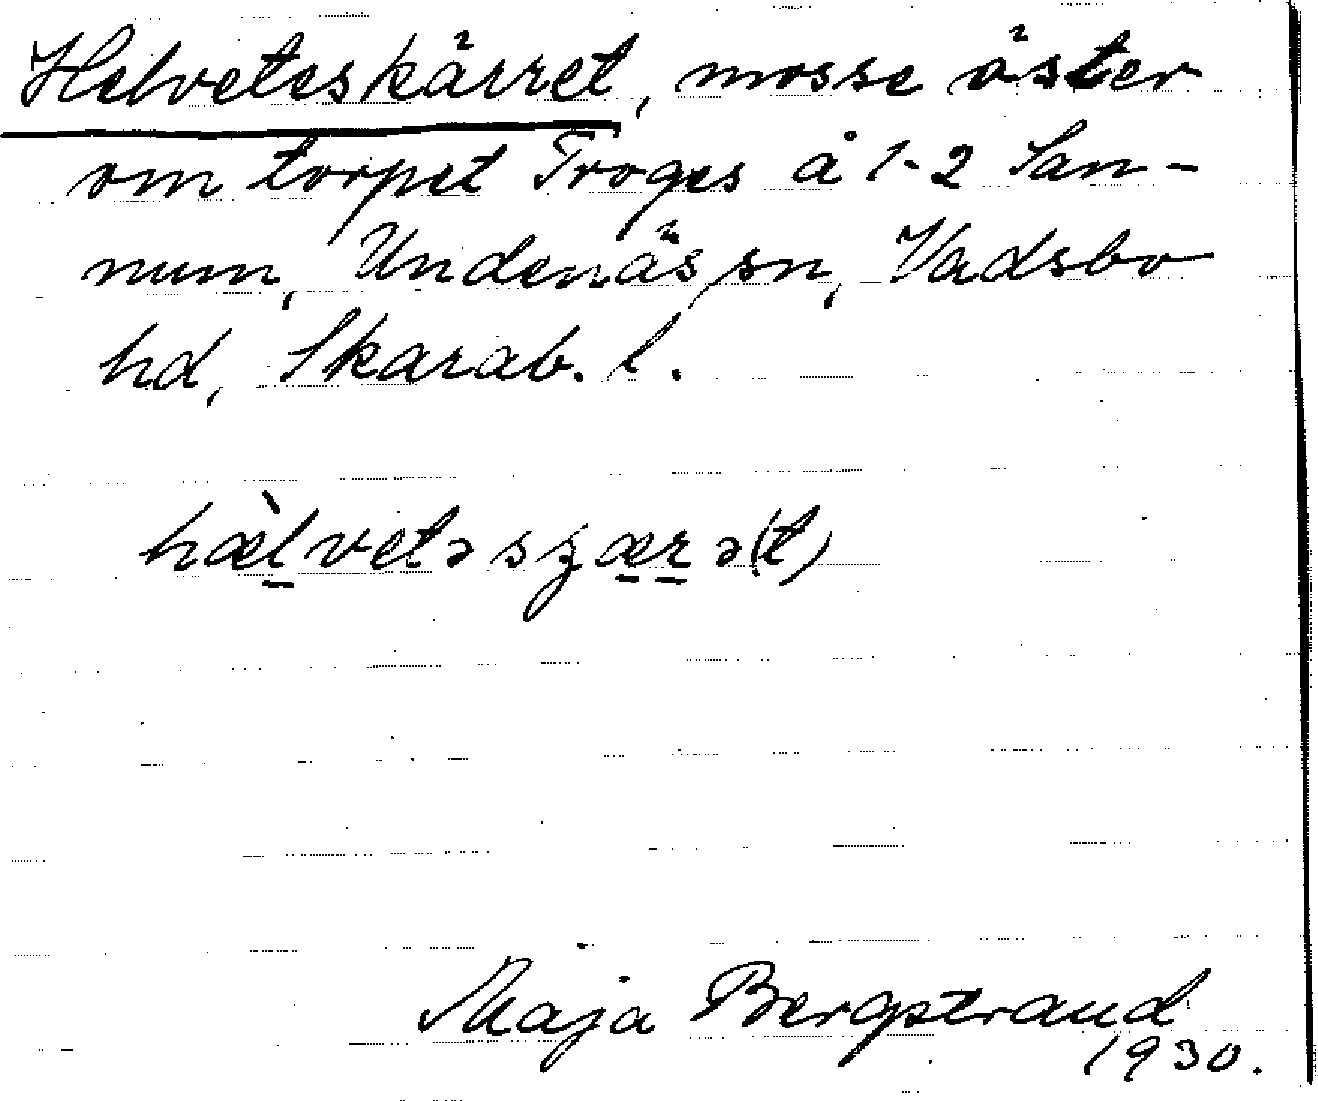 Helveteskärret, mosse öster
om torpet Troges å 1-2 San-
num, Undenäs sn, Vadsbo
hd, Skarab. l.
hæ̀lvetəsʒærə(t)
Maja Bergstrand
1930.